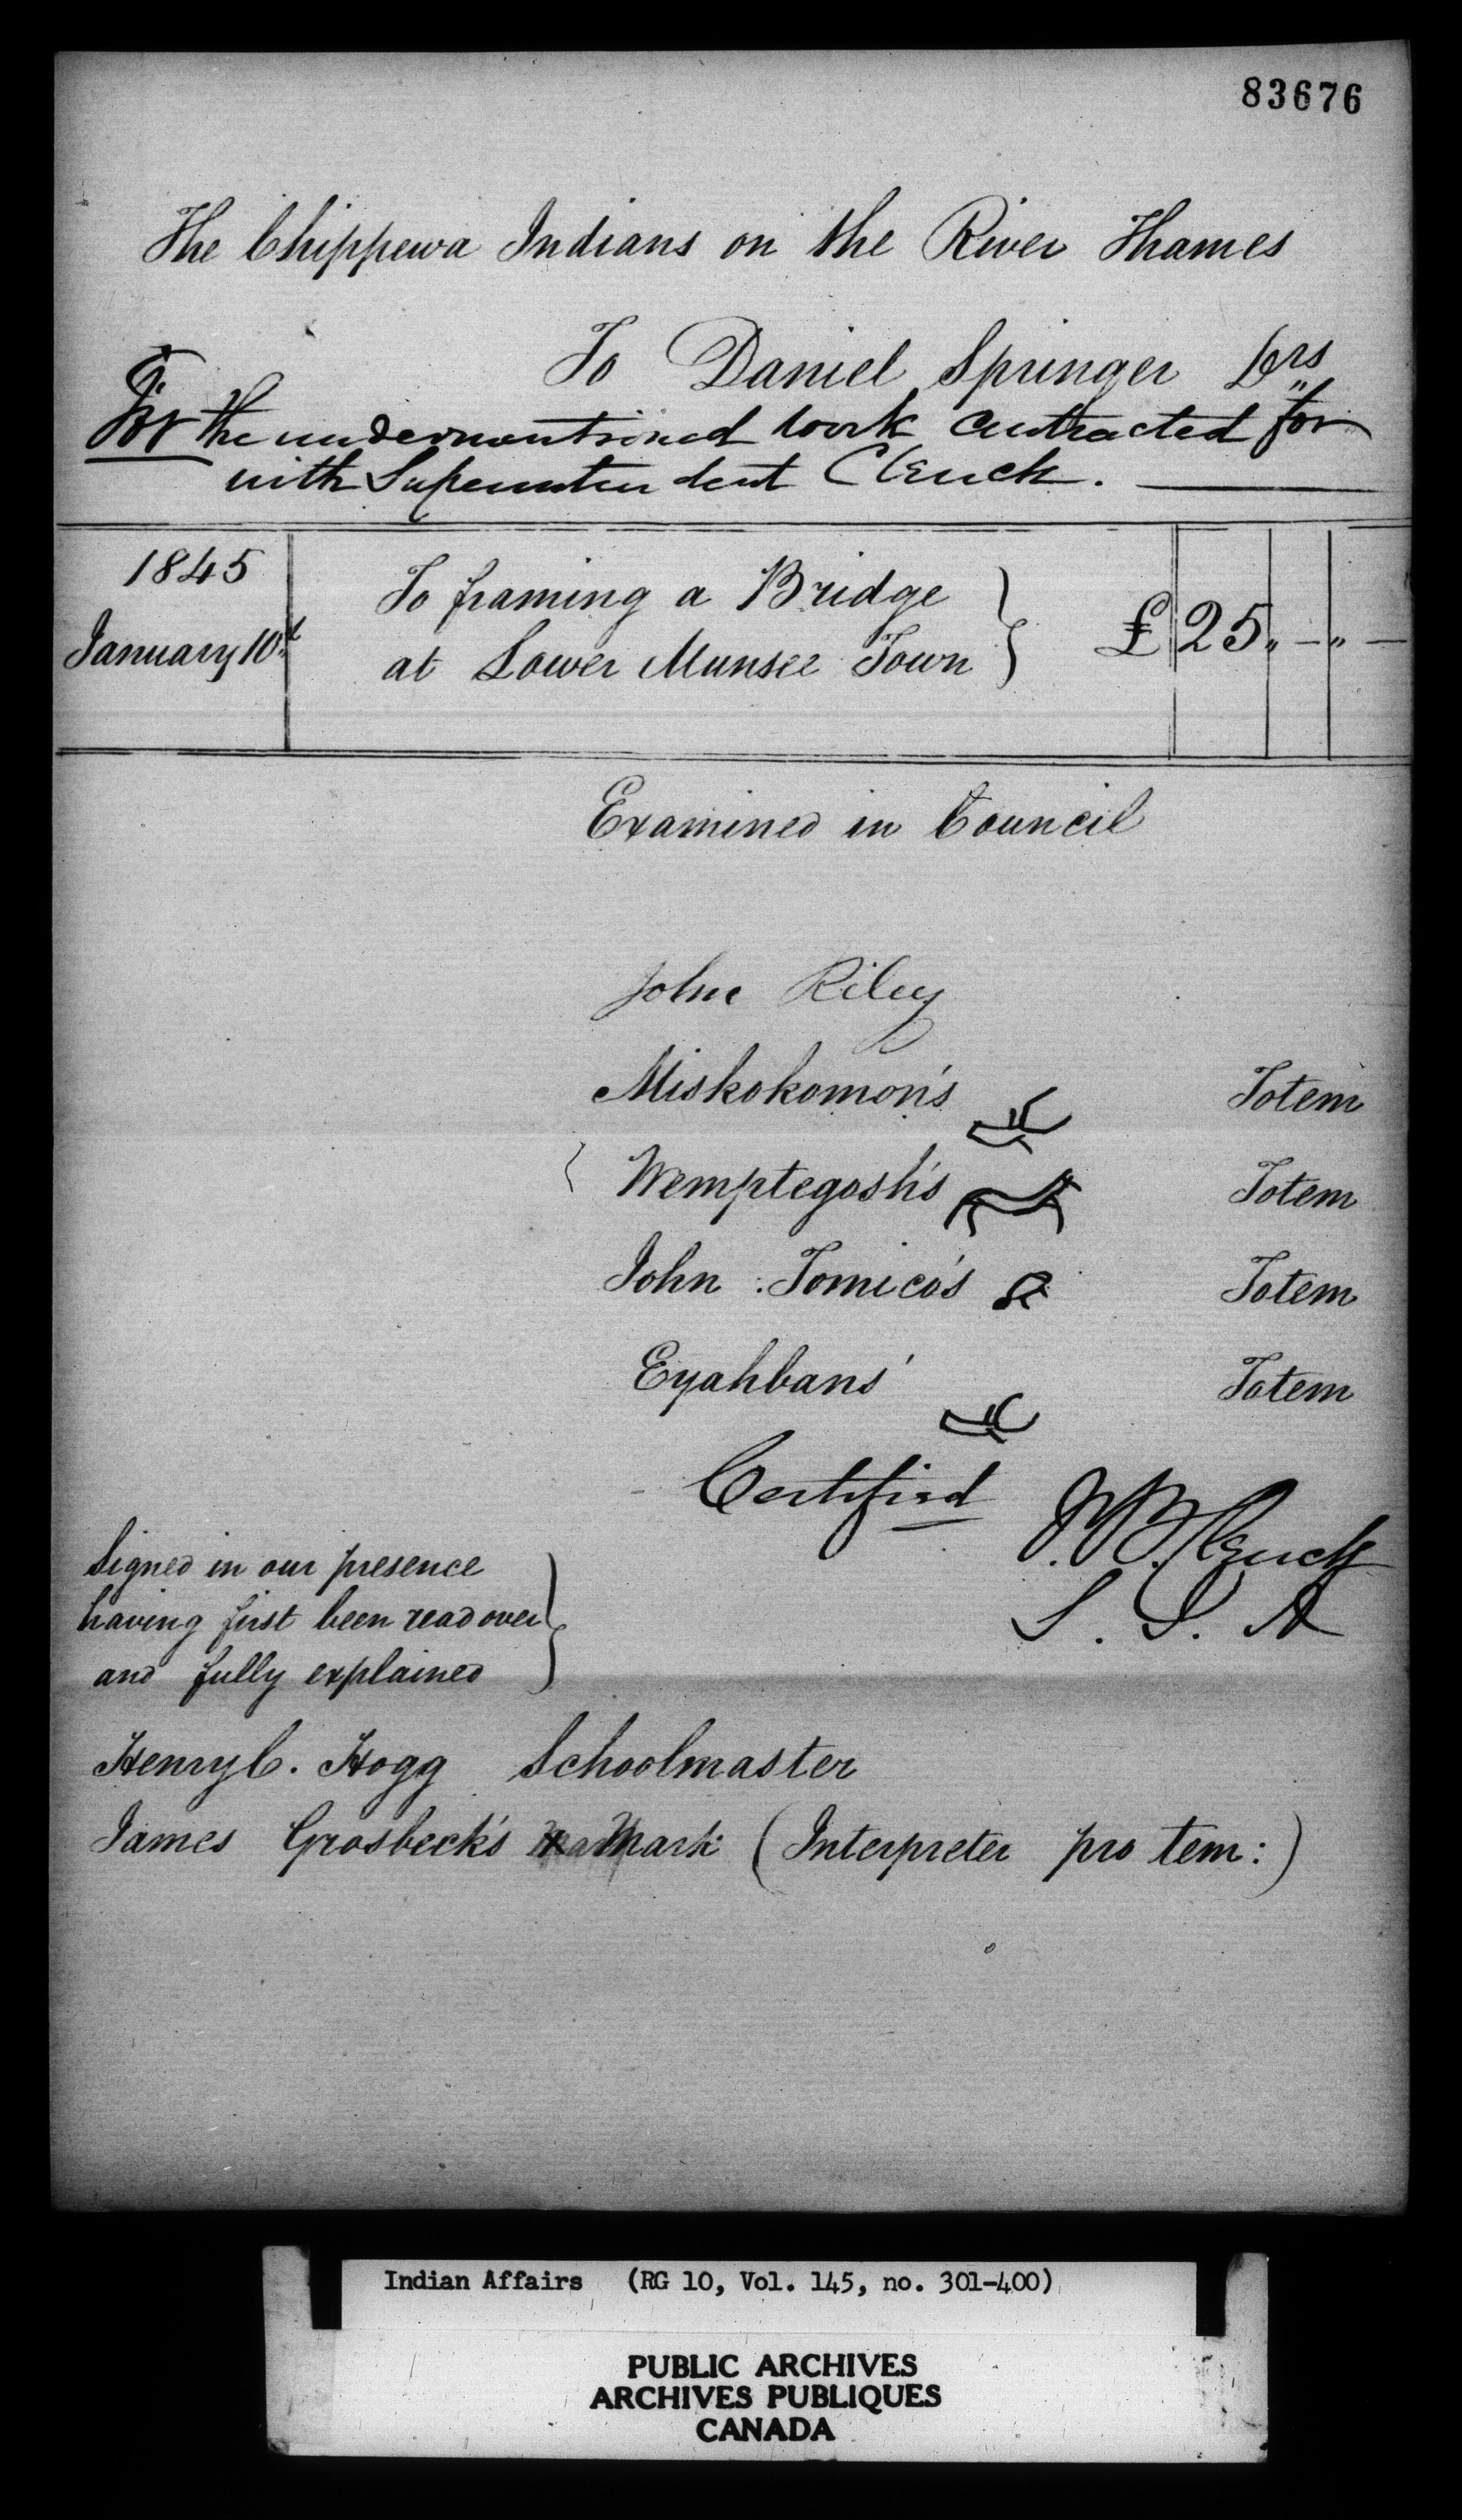 83676
The Chippewa Indians on the River Thames
To Daniel Springer Drs
For the undermentioned work contracted for
with Superintendent Clench.
1845
January 10th
To framing a Bridge
at Lower Munsee Town
£ 25 " — " —
Examined in Council
John Riley
Miskokomon's Totem
Wemptegosh's Totem
John Tomico's Totem
Eyahbans' Totem
Certified J. B. Clench
S. I. A
Signed in our presence
having first been read over
and fully explained
Henry C. Hogg Schoolmaster
James Grosbeck's x mark (Interpreter pro tem:)
Indian Affairs (RG 10, Vol. 145, no. 301-400)
PUBLIC ARCHIVES
ARCHIVES PUBLIQUES
CANADA